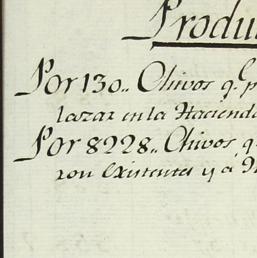 Produ
Por 130.. Chivos q.e p
lazar en la Haciend
Por 8228.. Chivos q
ron Existentes y á